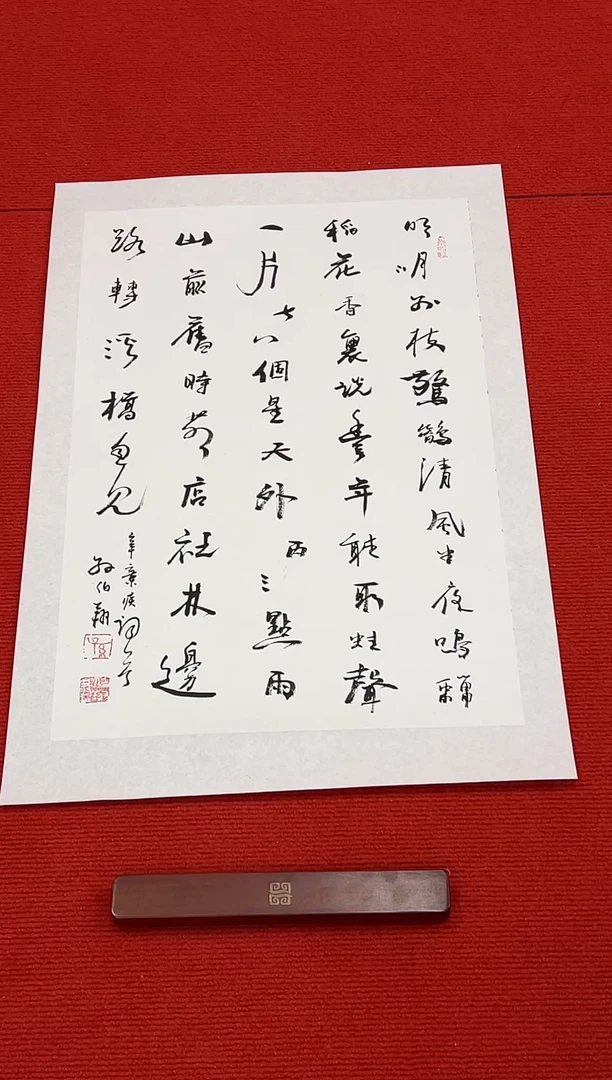 明月別枝驚鵲清風半夜鳴蟬
稻花香裏説豐年聽取蛙聲
一片七八個星天外兩三點雨
山前舊時茅店社林邊
路轉溪橋忽見
辛棄疾詞一首
孫伯翔